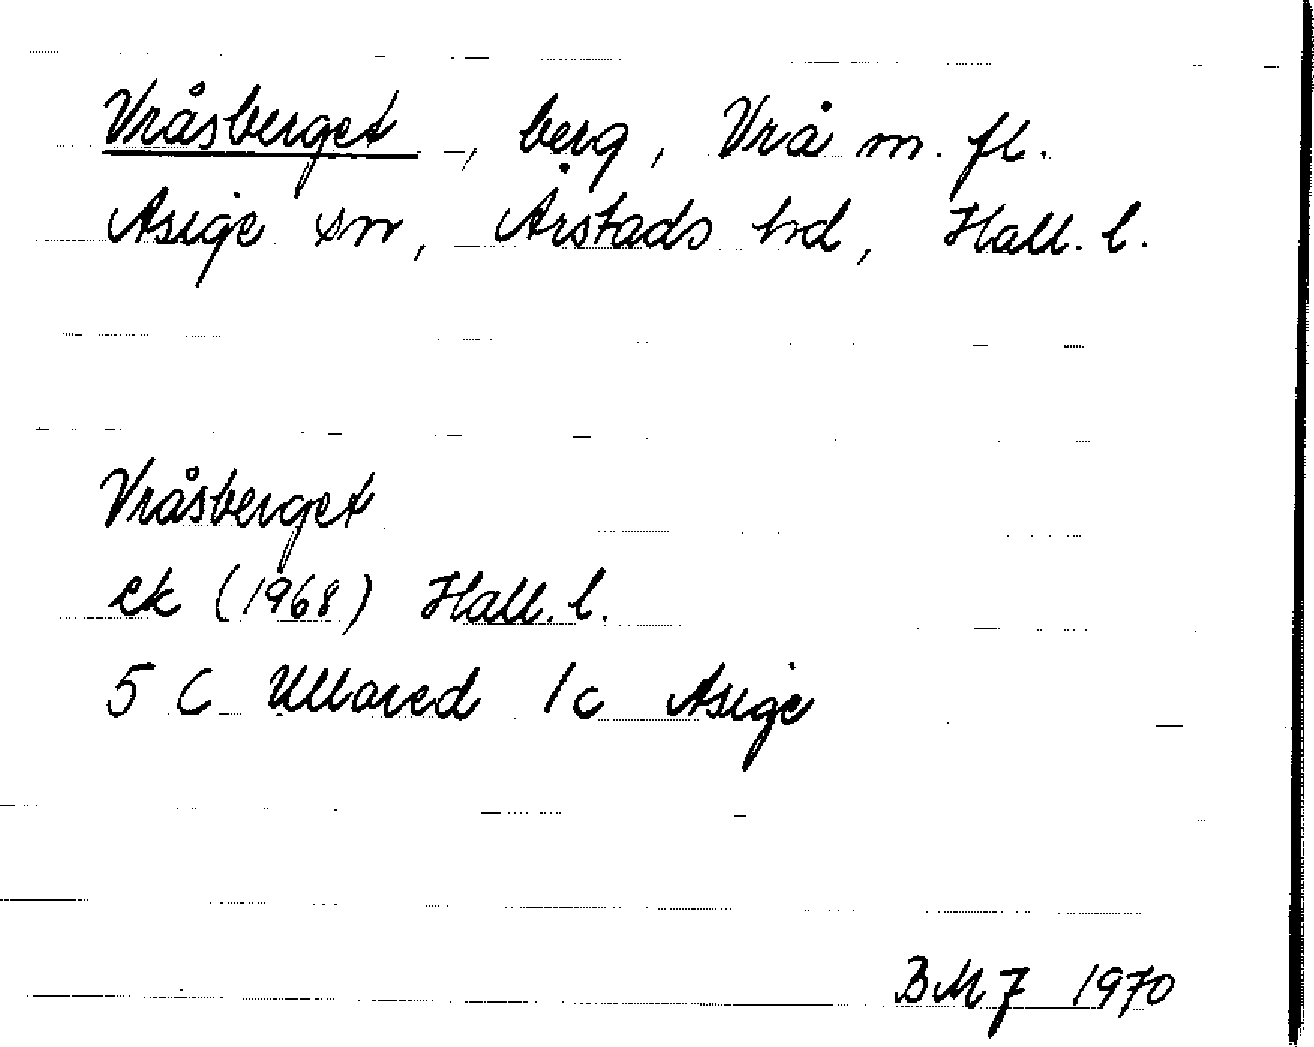 Vråsberget, berg, Vrå m. fl.
Asige sn, Årstads hd, Hall. l.
Vråsberget
ek (1968) Hall. l.
5 C Ullared 1c Asige
BM7 1970